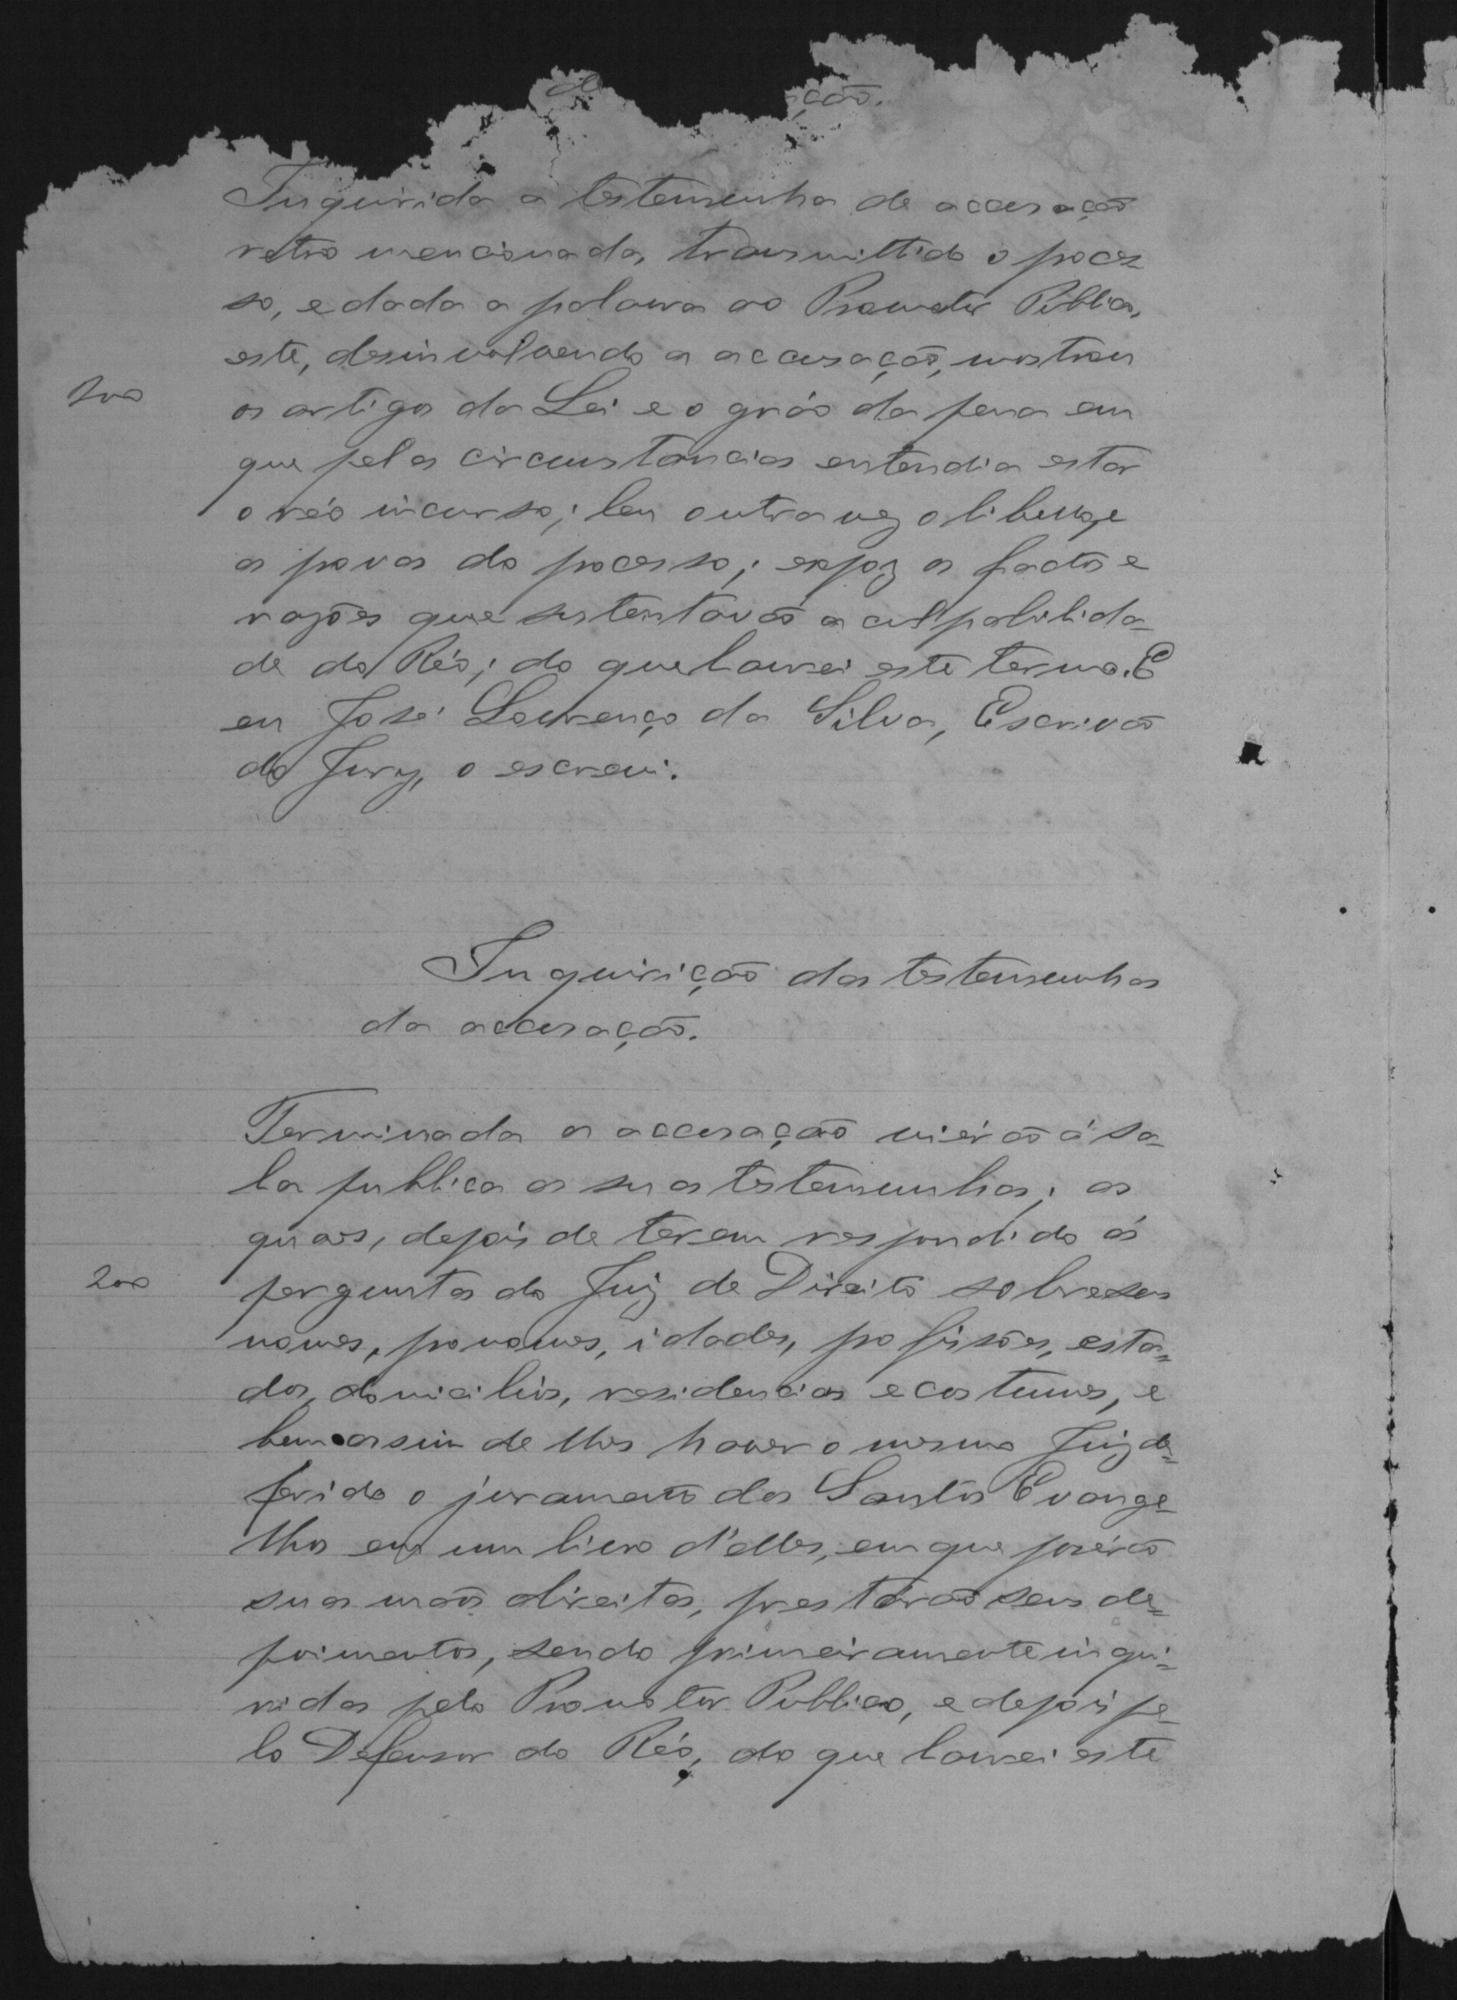 de ção.
Inquirida a testemunha de accusação
retro mencionada, transmittido o proces
so, e dada a palavra ao Promotor Publico,
este, desinvolvendo a accusação, mostrou
200
os artigos da Lei e o gráo da pena em
que pelas circumstancias entendia estar
o réo incurso; leu outra vez o libello, e
as provas do processo; expoz os factos e
razões que sustentavão a culpabilida-
de do Réo; do que lavrei este termo. E
eu José Lourenço da Silva, Escrivão
do Jury, o escrevi.
Inquirição das testemunhas
da accusação.
Terminada a accusação viérão á sa-
la publica as suas testemunhas; as
quaes, depois de terem respondido ás
200
perguntas do Juiz de Direito sobre seus
nomes, pronomes, idades, profissões, esta-
dos, domicilios, residencias e costumes, e
bem assim de lhes haver o mesmo Juiz de-
ferido o juramento dos Santos Evange-
lhos em um livro d'elles, em que poserão
suas mãos direitas, prestarão seus de-
poimentos, sendo primeiramente inqui-
ridas pelo Promotor Publico, e depois pe-
lo Defensor do Réo, do que lavrei este